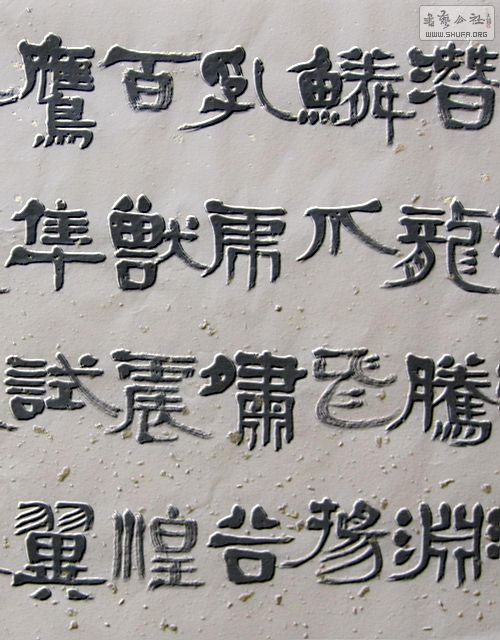 書藝公社
WWW.SHUFA.ORG
潛龍騰淵
鱗爪飛揚
乳虎嘯谷
百獸震惶
鷹隼試翼